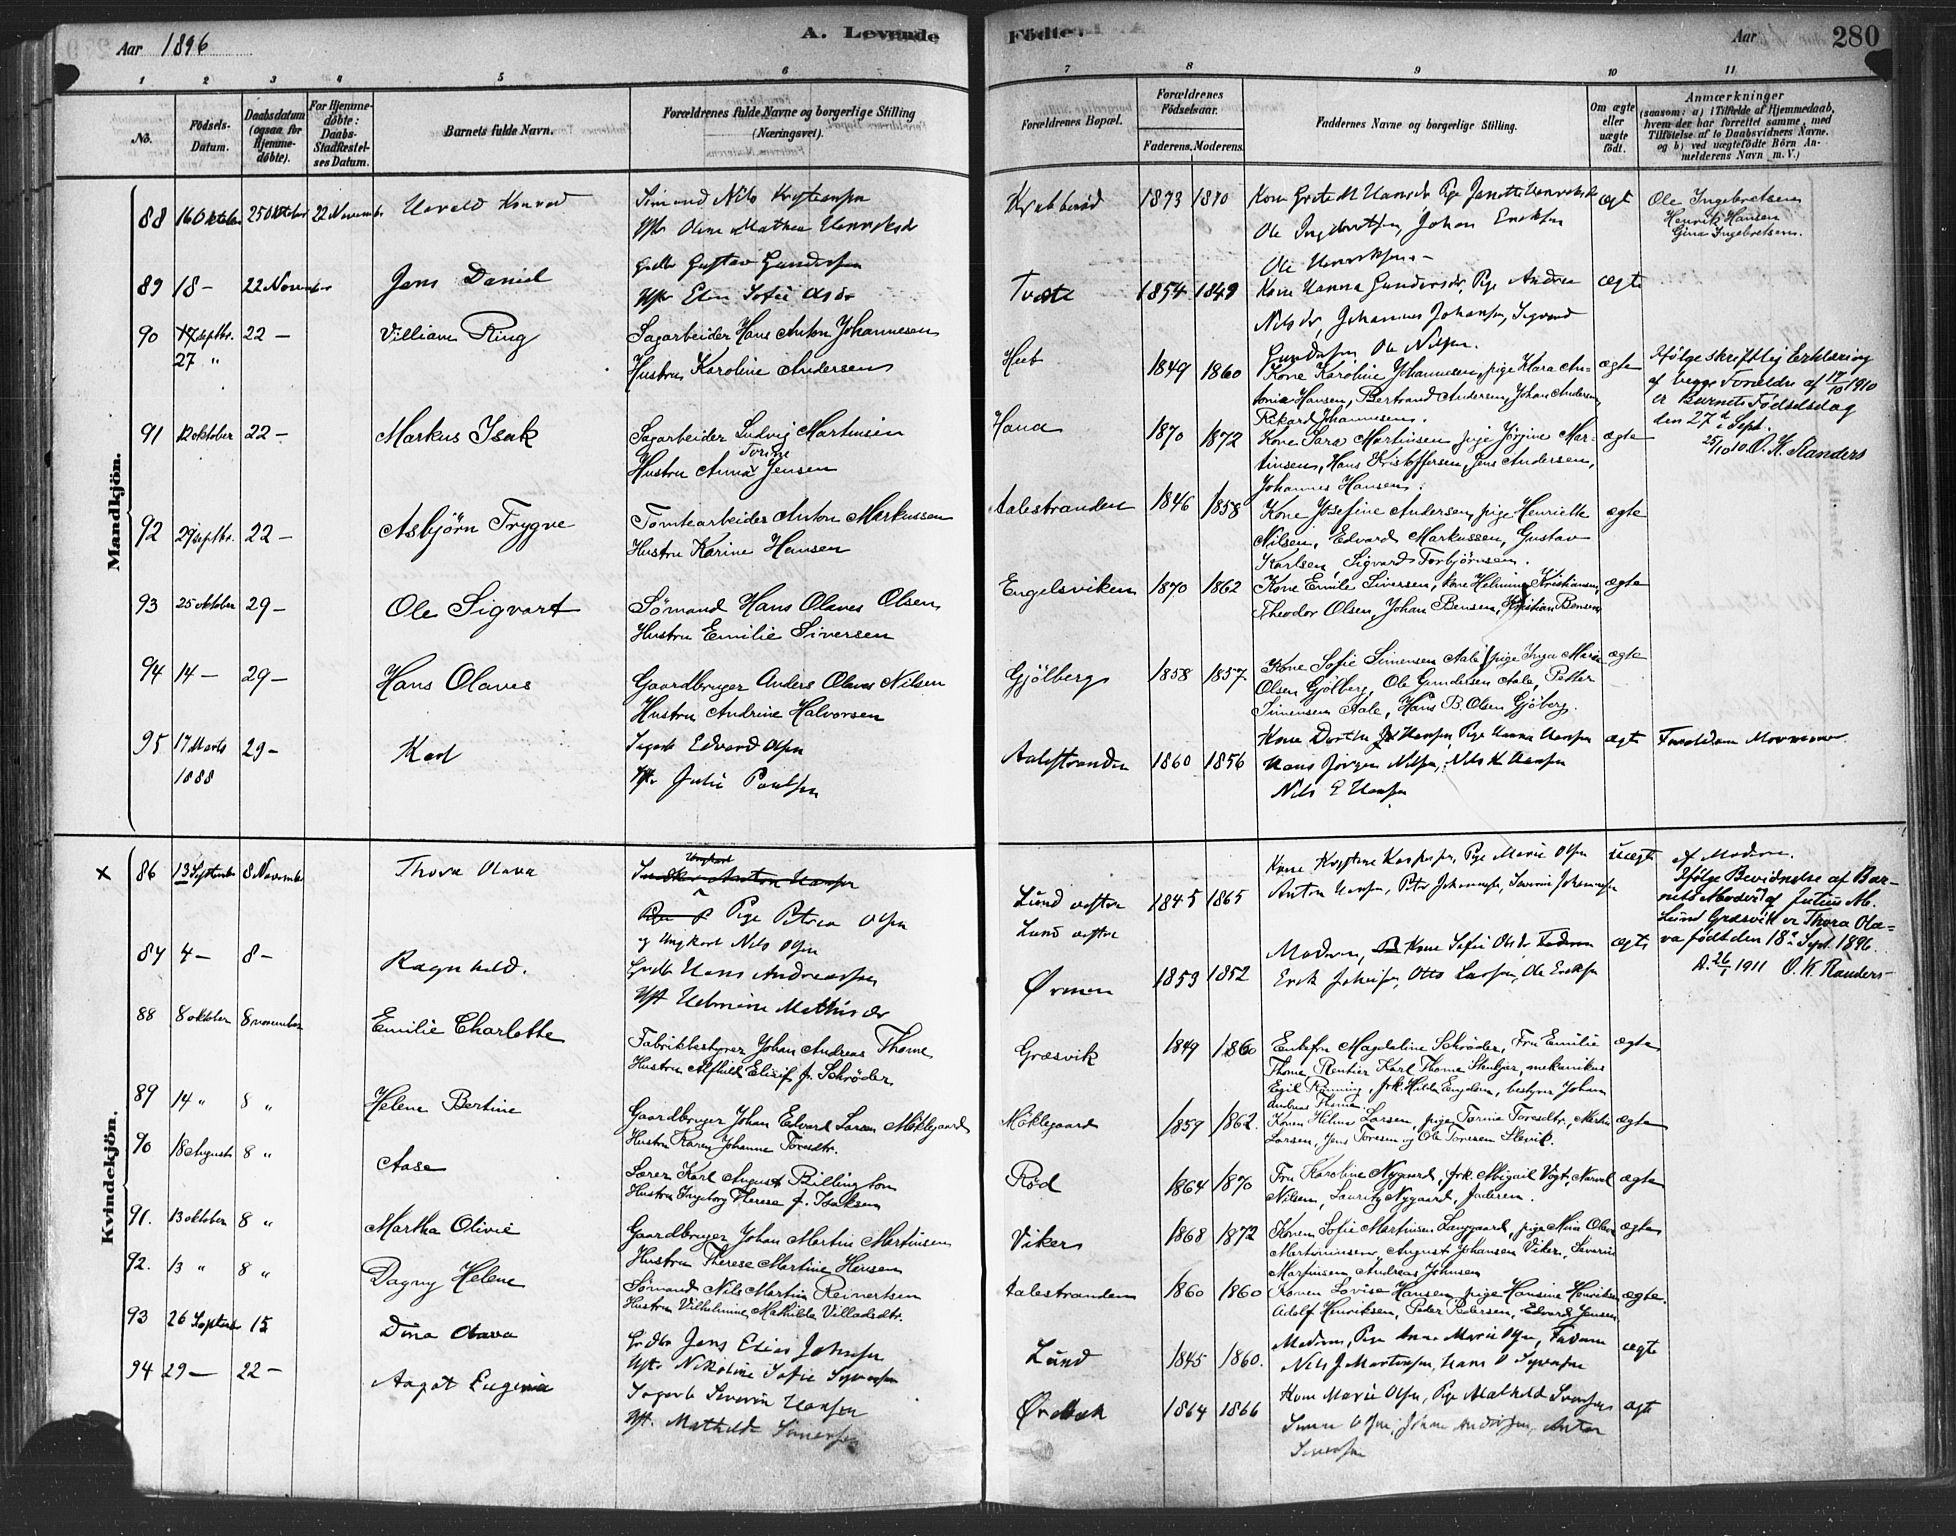 Aar 1896
A. Levende Fødte.
Aar
280
1 2 3 4 5 6 7 8 9 10 11
No.
Fødsels-Datum.
Daabsdatum (ogsaa for Hjemme-døbte).
For Hjemme-døbte: Daabs-Stadfæstel-ses Datum.
Barnets fulde Navn.
Forældrenes fulde Navne og borgerlige Stilling (Næringsvei).
Forældrenes Bopæl.
Forældrenes Fødselsaar.
Faderens. Moderens.
Faddernes Navne og borgerlige Stilling.
Om ægte eller uægte født.
Anmærkninger
(saasom: a) i Tilfælde af Hjemmedaab, hvem der har forrettet samme, med Tilføielse af to Daabsvidners Navne. og b) ved uægtefødte Børn An-melderens Navn m. V.)
Mandkjön.
88 16 Oktober 25 Oktober 22 November Harald Konrad
Sømand Nils Kristiansen
Oline Mathea
Krabberød 1873 1870
Ole Ingebretsen, Johan Eriksen
ægt
Ole Ingebretsen
Henrik Hansen
Gina Ingebretsen.
89 18 — 22 November Jens Daniel
Gdbr Gustav Gundersen
Hstr Elen Sofie
1854 1849
Kone Hanna Gundersdr, Pige Andrea
Nilsdr, Johannes Johansen, Sigvard
Gundersen, Ole Nilsen.
ægte
90 17 Septbr. 22 — Villiam Ring
27 "
Sagarbeider Hans Anton Johannesen
Hustru Karoline Andersen
1849 1860
Kone Karoline Johannesen, pige Klara An-
tonia Hansen, Bertrand Andersen, Johan Andersen,
Rikard Johannesen.
ægte
Ifølge skriftlig Erklæring
af begge Forældre af 17/10 1910
er Barnets Fødselsdag
den 27de Sept.
25/10 10 O. K. Randers
91 12 oktober 22 — Markus Isak
Sagarbeider Ludvig Martinsen
Hustru Anna Torine Jensen
1870 1872
Kone Sara Martinsen, pige Jörgine Mar-
tinsen, Hans Kristoffersen, Jens Andersen,
Johannes Hansen.
ægte
92 29 septbr. 22 — Asbjörn Trygve
Tomtearbeider Anton Markussen
Hustru Karine Hansen
Aalestranden 1846 1858
Kone Josefine Andersen, pige Henriette
Nilsen, Edvard Markussen, Gustav
Karlsen, Sigvard Torbjörnsen.
ægte
93 25 oktober 29 — Ole Sigvart
Sømand Hans Olaves Olsen,
Hustru Emilie Siversen
Engelsviken 1870 1862
Kone Emilie Siversen, kone Helmine Kristiansen,
Theodor Olsen, Johan Bensen, Kristian Bensen
ægte
94 14 — 29 — Hans Olaves
Gaardbruger Anders Olaves Nilsen
Hustru Andrine Halvorsen
Gjölberg 1858 1857
Kone Sofie Simensen Aale, pige Inga Marie
Olsen Gjölberg, Ole Gundersen Aale, Petter
Simensen Aale, Hans B. Olsen Gjöberg.
ægte
95 17 Marts 29 — Karl
1888
Sagarb Edvard Olsen
Hstr Julie Paulsen
Aalestranden 1860 1856
Kone Dorthe Hansen, Pige Hanna Hansen
Hans Jörgen Nilsen, Nils K Hansen
Nils E Hansen
ægte
Forældrene Mormoner.
Kvindekjön.
x 86 13 September 8 November Thora Olava
Ungkarl
Pige Petrea Olsen
og Ungkarl Nils Olsen
Lund vestre 1845 1865
Lund vestre
Pige Marie Olsen
Anton Hansen, Peter Johannesen, Severin Johannesen
uægte
af Moderen.
Ifølge Bevidnelse af Bar-
nets Moder af Julius M.
Lund Græsvik er Thora Ola-
va født den 18de Sept. 1896.
D. 26/1 1911 O. K. Randers
87 4 — 8 — Ragnhild.
Gdbr Hans Andreassen
Hst Helmine Mathisdr
Ørmen 1853 1852
Moderen, Kone Sofie Olsdr Faderen
Erik Johnsen, Otto Larsen, Ole Eriksen
ægte
88 8 oktober 8 november Emilie Charlotte
Fabrikbestyrer Johan Andreas Thome
Hustru Alfhild Elisif f. Schrøder
Græsvik 1849 1860
Enkefru Magdaline Schrøder, Fru Emilie
Thome, Rentier Karl Thome, mekanikus
Egil Rönning, frk. Hilda Engelsen, bestyrer Johan
Andreas Thome.
ægte
89 14 " 8 " Helene Bertine
Gaardbruger Johan Edvard Larsen Möklegaard
Hustru Karen Johanne Toresdtr.
Möklegaard 1859 1862.
Konen Helma Larsen, pige Torine Toresdtr., Martin
Larsen, Jens Toresen og Ole Toresen Slevik.
ægte
90 18 August 8 " Aase
Lærer Karl August Billington
Hustru Ingeborg Therese f. Isaksen
Röd 1864 1870
Fru Karoline Nygaard, frk. Abigail Vogt,
Nilsen, Lauritz Nygaard,
ægte
91. 13 oktober 8 " Martha Olivie
Gaardbruger Johan Martin Martinsen
Hustru Therese Martine Hansen
Viker 1868 1872
Konen Sofie Martinsen Langgaard, pige Mina Olava
Martiniussen, August Johansen Viker, Severin
Martinsen, Andreas Johnsen
ægte
92. 13 " 8 " Dagny Helene
Sømand Nils Martin Reinertsen
Hustru Vilhelmine Mathilde Villadsdtr.
Aalestranden 1860 1860
Konen Lovise Hansen, pige Hansine Henriksen,
Adolf Henriksen, Peder Pedersen, Edvard Jensen
ægte.
93 26 September 15 Dina Olava
Gdbr Jens Elias Johnsen
Hstr Nikoline Sofie Syversen
Lund 1845 1860.
Moderen, Pige Anna Marie Olsen, Faderen
Nils J Martinsen, Hans O Syversen
ægte
94 29 — 22 — Aagot Eugenia
Sagarb Severin Hansen
Hst. Mathilde Simensen
Ørebæk 1864 1866
Kone Marie Olsen, Pige Mathilde
ægte